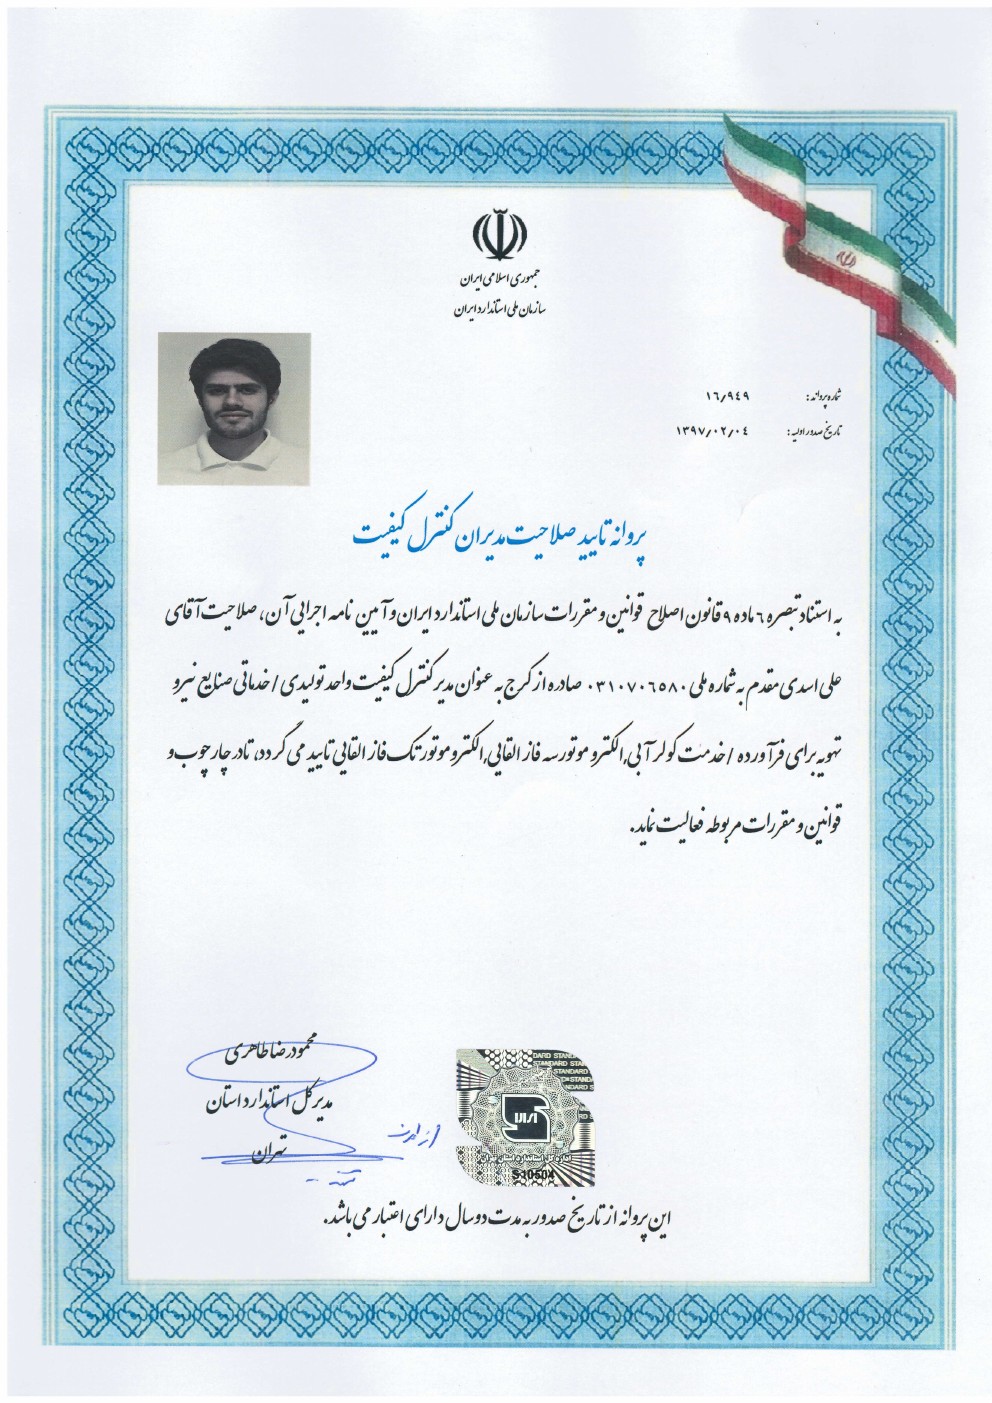 جمهوری اسلامی ایران
سازمان ملی استاندارد ایران
شماره پروانه: ۱۶٫۹۴۹
تاریخ صدور اولیه: ۱۳۹۷٫۰۲٫۰۴
پروانه تایید صلاحیت مدیران کنترل کیفیت
به استناد تبصره ۶ ماده ۹ قانون اصلاح قوانین و مقررات سازمان ملی استاندارد ایران و آیین نامه اجرایی آن، صلاحیت آقای
علی اسدی مقدم به شماره ملی ۰۳۱۰۷۰۶۵۸۰ صادره از کرج به عنوان مدیر کنترل کیفیت واحد تولیدی / خدماتی صنایع نیرو
تهویه برای فرآورده / خدمت کولر آبی,الکترو موتور سه فاز القایی,الکتروموتور تک فاز القایی تایید می گردد، تا در چارچوب و
قوانین و مقررات مربوطه فعالیت نماید.
محمودرضا طاهری
مدیر کل استاندارد استان
تهران
STANDARD
اداره کل استاندارد استان تهران
S10504
این پروانه از تاریخ صدور به مدت دو سال دارای اعتبار می باشد.